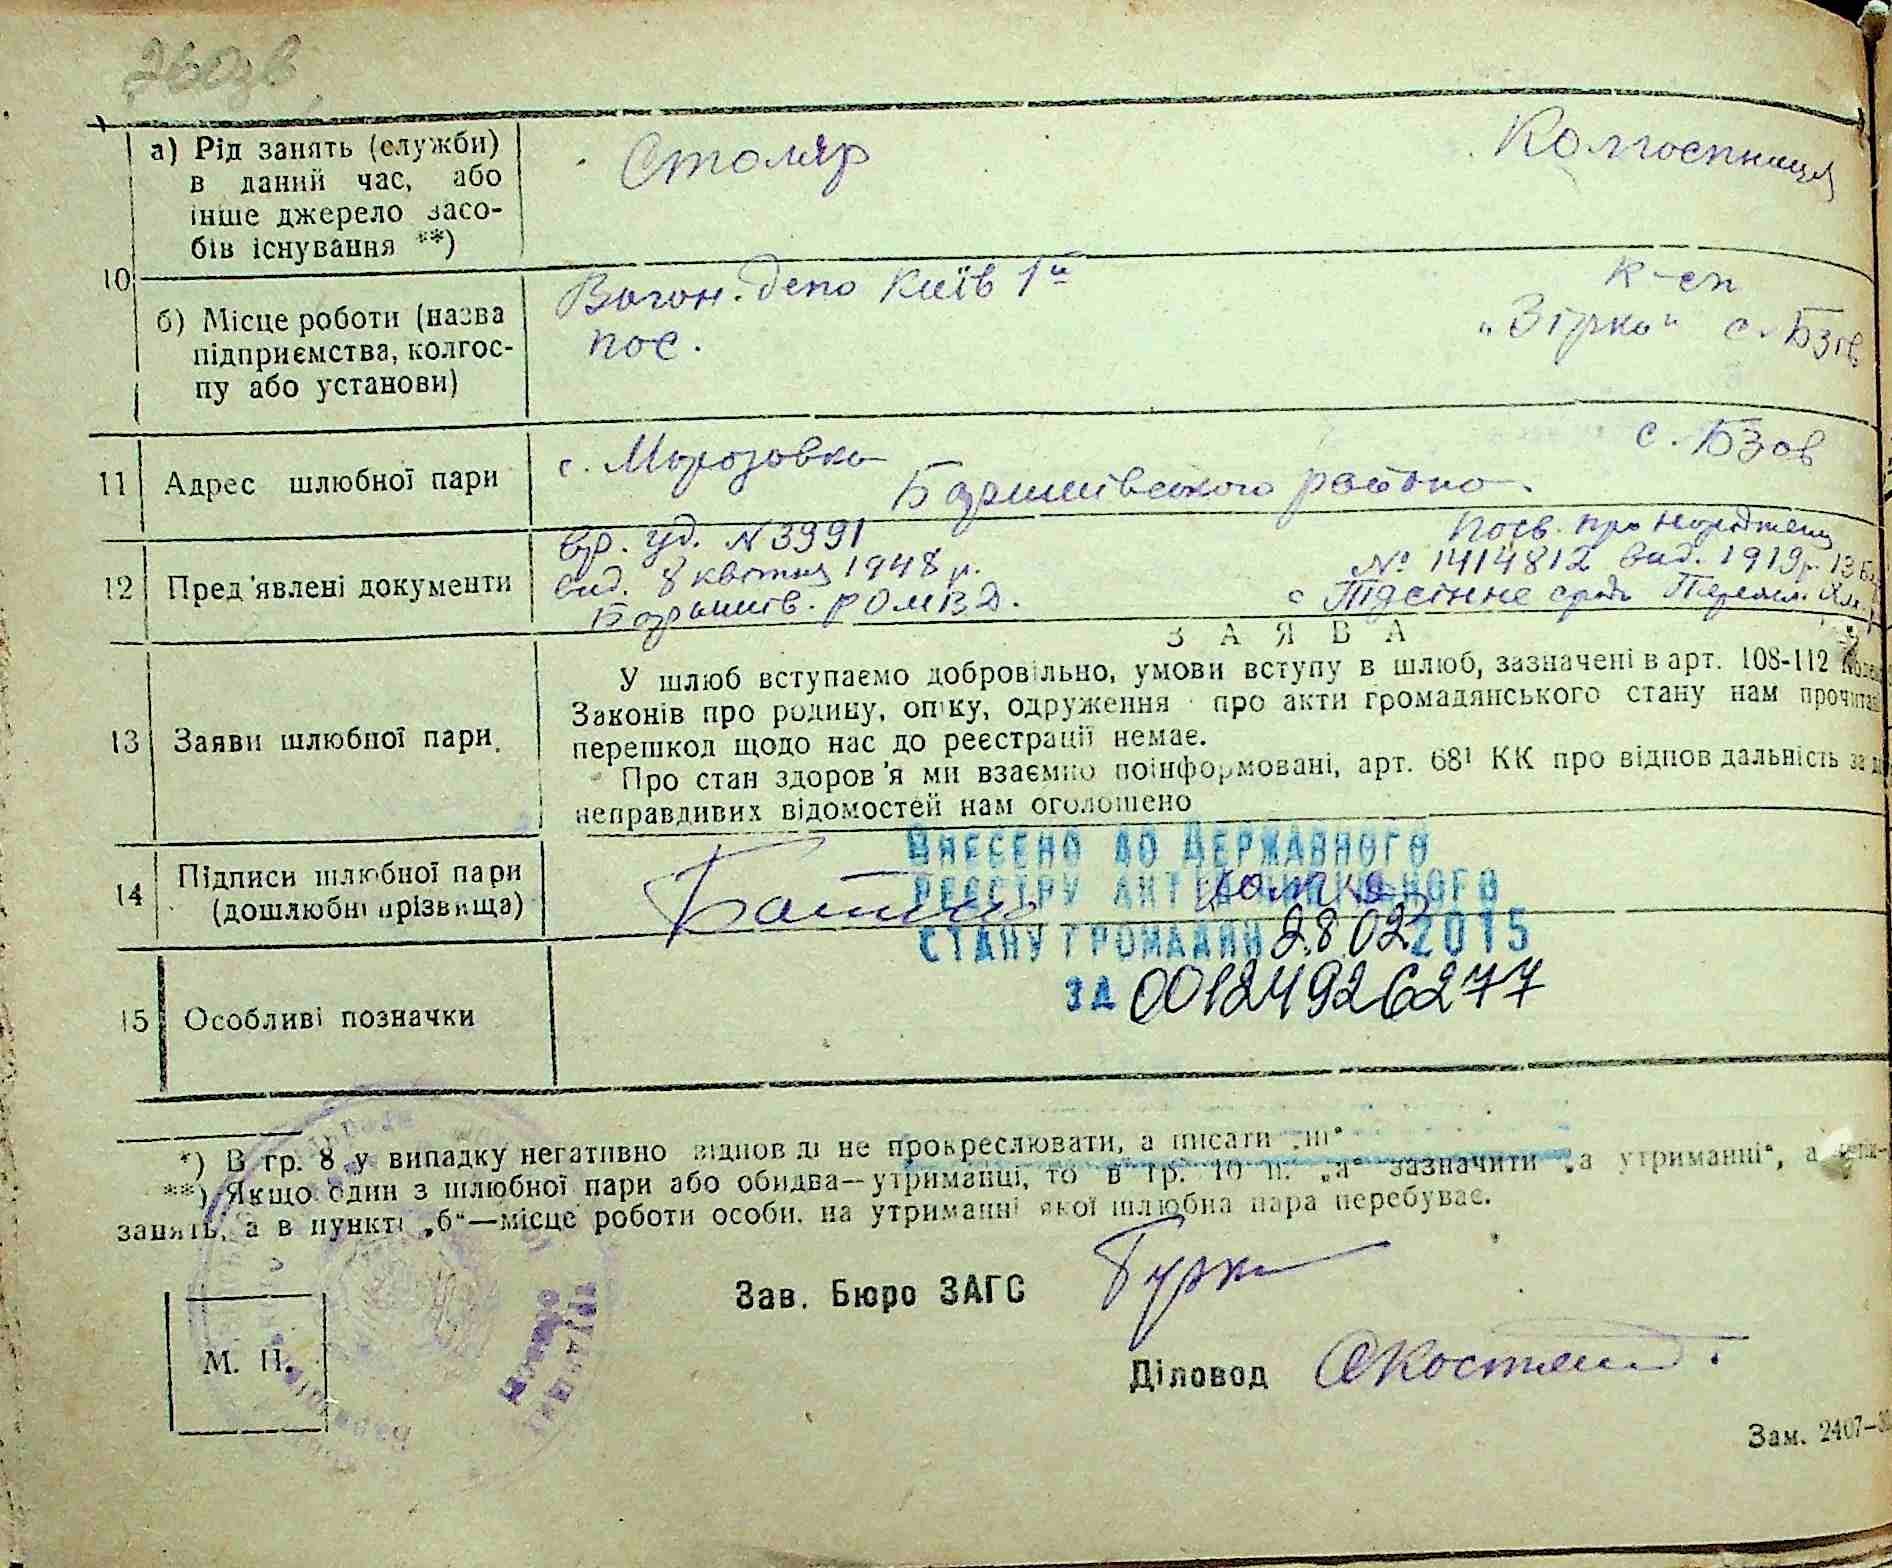 а) Рід занять (служби)
в даний час, або
інше джерело засо-
бів існування **)
Столяр
Колгоспниця
10
б) Місце роботи (назва
підприємства, колгос-
пу або установи)
Вагон. депо Київ 1й
пос.
к-сп
"Зірка" с. Бзів
11 Адрес шлюбної пари
с. Морозовка
с. Бзов
Баришівського району.
12 Пред'явлені документи
вр. уд. N 3991
вид. 8 квітня 1948 р.
Баришів. РОМВД.
Посв. про народжен
№ 1414812 вид. 1919 р. 13
с
13 Заяви шлюбної пари
ЗАЯВА
У шлюб вступаємо добровільно, умови вступу в шлюб, зазначені в арт. 108-112
Законів про родину, опіку, одруження про акти громадянського стану нам прочитан
перешкод щодо нас до реєстрації немає.
Про стан здоров'я ми взаємно поінформовані, арт. 68¹ КК про відповідальність за
неправдивих відомостей нам оголошено
14 Підписи шлюбної пари
(дошлюбні прізвища)
ВНЕСЕНО ДО ДЕРЖАВНОГО
РЕЄСТРУ АКТІВ ЦИВІЛЬНОГО
СТАНУ ГРОМАДЯН 28.02 2015
ЗА 00124926277
15 Особливі позначки
*) В гр. 8 у випадку негативно відповіді не прокреслювати, а писати „ні"
**) Якщо один з шлюбної пари або обидва—утриманці, то в гр. 10 п. „а" зазначити „а утриманні", а
занять, а в пункті „б"—місце роботи особи, на утриманні якої шлюбна пара перебуває.
Зав. Бюро ЗАГС
Діловод
М. П.
Зам. 2407—